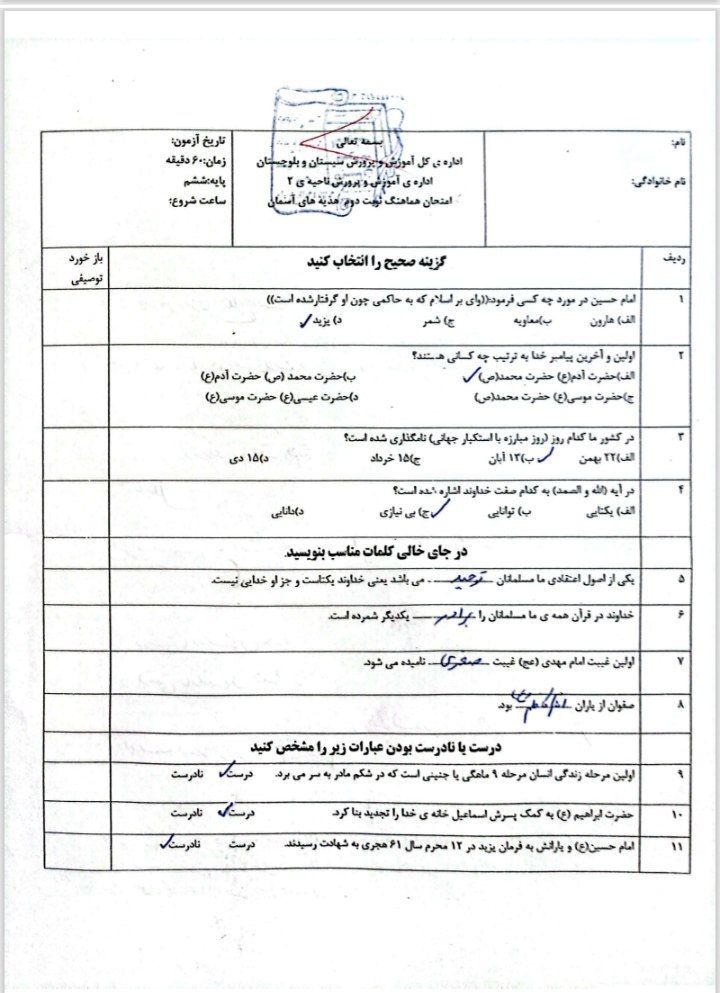 نام:
نام خانوادگی:
بسمه تعالی
اداره ی کل آموزش و پرورش سیستان و بلوچستان
اداره ی آموزش و پرورش ناحیه ی ۲
امتحان هماهنگ نوبت دوم هدیه های آسمان
تاریخ آزمون:
زمان:۶۰ دقیقه
پایه:ششم
ساعت شروع:
ردیف گزینه صحیح را انتخاب کنید باز خورد توصیفی
۱ امام حسین در مورد چه کسی فرمود:((وای بر اسلام که به حاکمی چون او گرفتارشده است))
الف) هارون ب)معاویه ج) شمر د) یزید ✓
۲ اولین و آخرین پیامبر خدا به ترتیب چه کسانی هستند؟
الف)حضرت آدم(ع) حضرت محمد(ص) ✓ ب)حضرت محمد (ص) حضرت آدم(ع)
ج)حضرت موسی(ع) حضرت محمد(ص) د)حضرت عیسی(ع) حضرت موسی(ع)
۳ در کشور ما کدام روز (روز مبارزه با استکبار جهانی) نامگذاری شده است؟
الف)۲۲ بهمن ✓ ب)۱۳ آبان ج)۱۵ خرداد د)۱۵ دی
۴ در آیه (الله و الصمد) به کدام صفت خداوند اشاره شده است؟
الف) یکتایی ب) توانایی ✓ ج) بی نیازی د)دانایی
در جای خالی کلمات مناسب بنویسید.
۵ یکی از اصول اعتقادی ما مسلمانان توحید می باشد یعنی خداوند یکتاست و جز او خدایی نیست.
۶ خداوند در قرآن همه ی ما مسلمانان را برادر یکدیگر شمرده است.
۷ اولین غیبت امام مهدی (عج) غیبت صغری نامیده می شود.
۸ صفوان از یاران امام کاظم (ع) بود.
درست یا نادرست بودن عبارات زیر را مشخص کنید
۹ اولین مرحله زندگی انسان مرحله ۹ ماهگی یا جنینی است که در شکم مادر به سر می برد. درست ✓ نادرست
۱۰ حضرت ابراهیم (ع) به کمک پسرش اسماعیل خانه ی خدا را تجدید بنا کرد. درست ✓ نادرست
۱۱ امام حسین(ع) و یارانش به فرمان یزید در ۱۲ محرم سال ۶۱ هجری به شهادت رسیدند. درست نادرست ✓